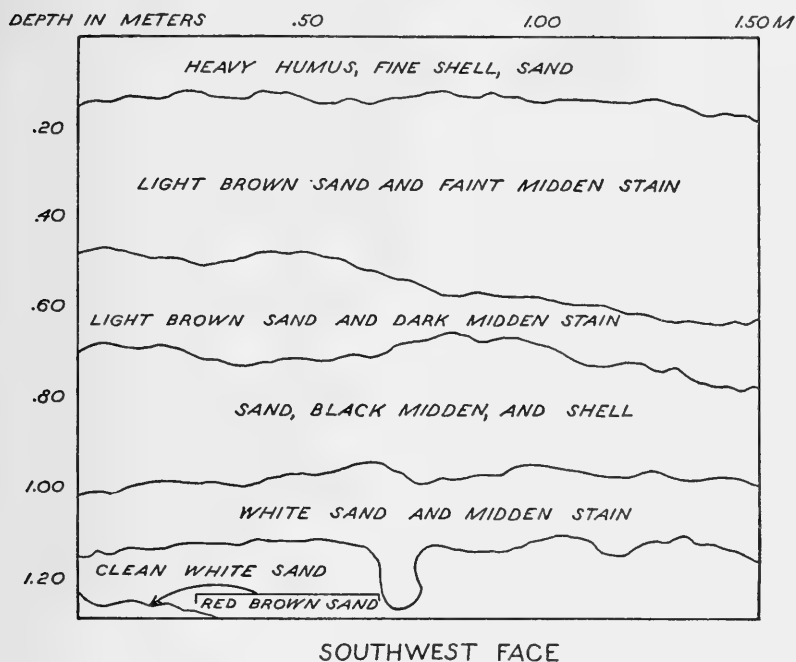 DEPTH IN METERS .50 1.00 1.50 M
HEAVY HUMUS, FINE SHELL, SAND
.20
LIGHT BROWN SAND AND FAINT MIDDEN STAIN
.40
.60
LIGHT BROWN SAND AND DARK MIDDEN STAIN
.80
SAND, BLACK MIDDEN, AND SHELL
1.00
WHITE SAND AND MIDDEN STAIN
CLEAN WHITE SAND
1.20
RED BROWN SAND
SOUTHWEST FACE